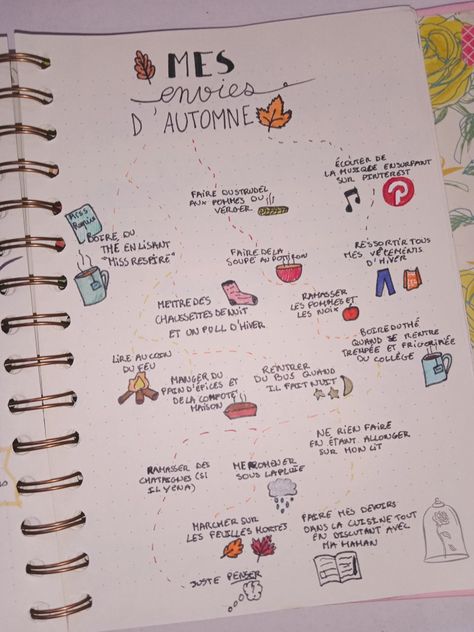 MES
envies
D'AUTOMNE
ÉCOUTER DE
LA MUSIQUE EN SURFANT
SUR PINTEREST
FAIRE DU STRUDEL
AUX POMMES DU
VERGER
Miss
Respire
BOIRE DU
THÉ EN LISANT
"MISS RESPIRE"
FAIRE DE LA
SOUPE AU POTIRON
RESSORTIR TOUS
MES VÊTEMENTS
D'HIVER
METTRE DES
CHAUSSETTES DE NUIT
ET UN PULL D'HIVER
RAMASSER
LES POMMES ET
LES NOIX
BOIRE DU THÉ
QUAND JE RENTRE
TREMPÉE ET FRIGORIFIÉE
DU COLLÈGE
LIRE AU COIN
DU FEU
MANGER DU
PAIN D'ÉPICES ET
DE LA COMPOTE
MAISON
RENTRER
DU BUS QUAND
IL FAIT NUIT
NE RIEN FAIRE
EN ÉTANT ALLONGER
SUR MON LIT
RAMASSER DES
CHATAIGNES (SI
IL Y EN A)
ME PROMENER
SOUS LA PLUIE
MARCHER SUR
LES FEUILLES MORTES
FAIRE MES DEVOIRS
DANS LA CUISINE TOUT
EN DISCUTANT AVEC
MA MAMAN
JUSTE PENSER